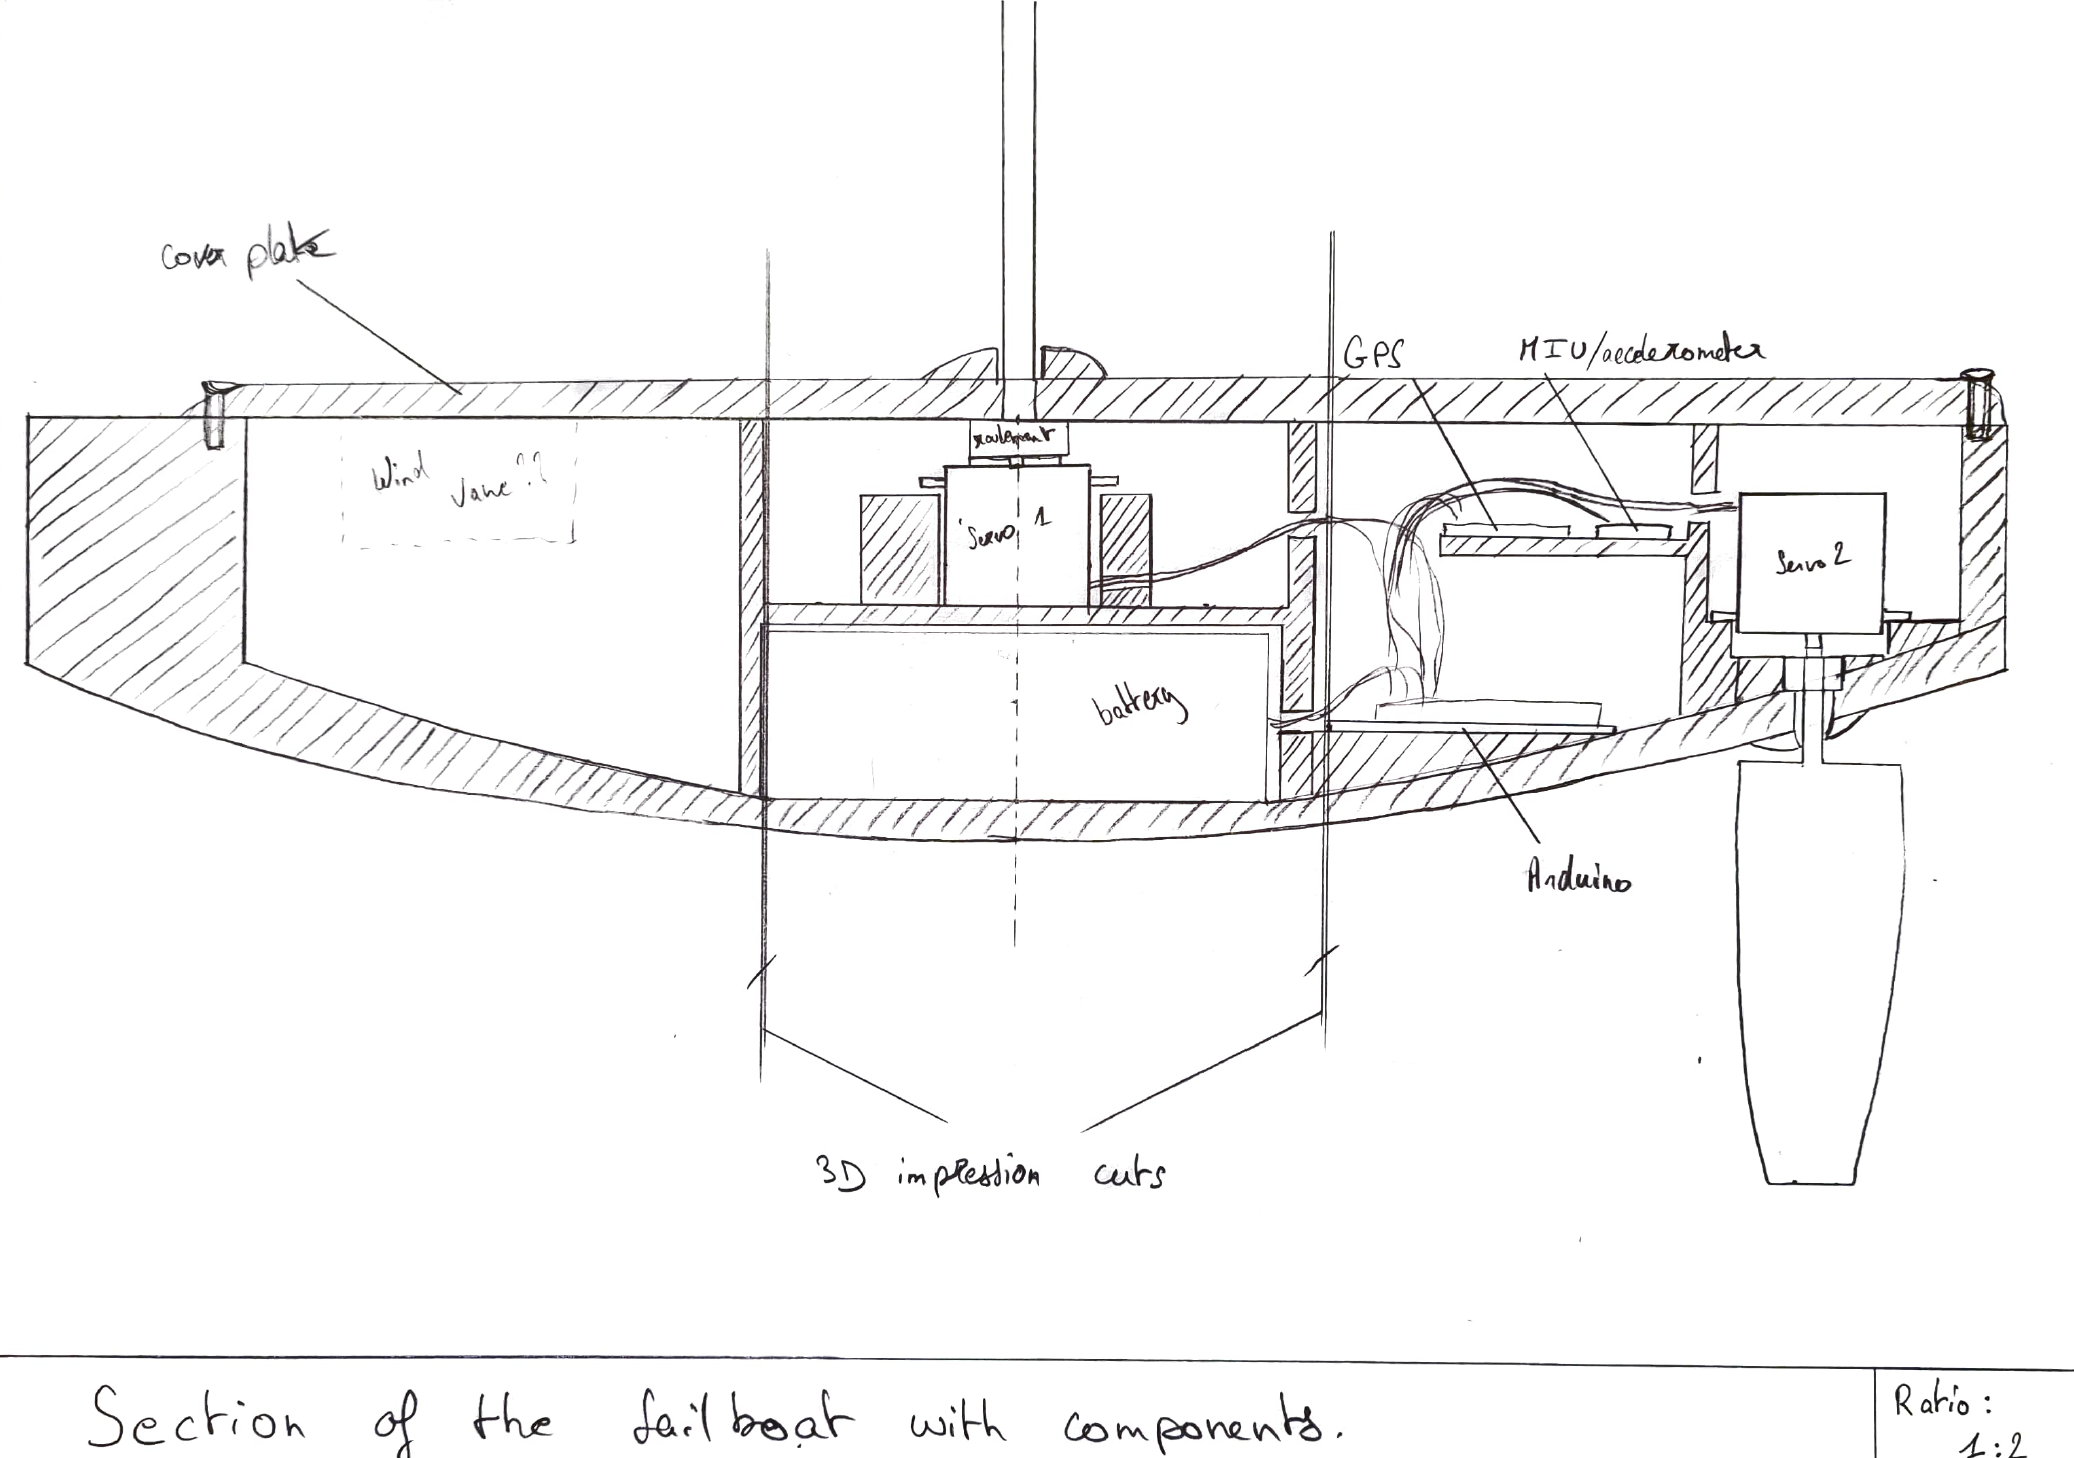 cover plate
GPS
MIU/accelerometer
Wind
Vane ??
roulement
Servo 1
Servo 2
battery
Arduino
3D impression cuts
Section of the sailboat with components.
Ratio :
1:2